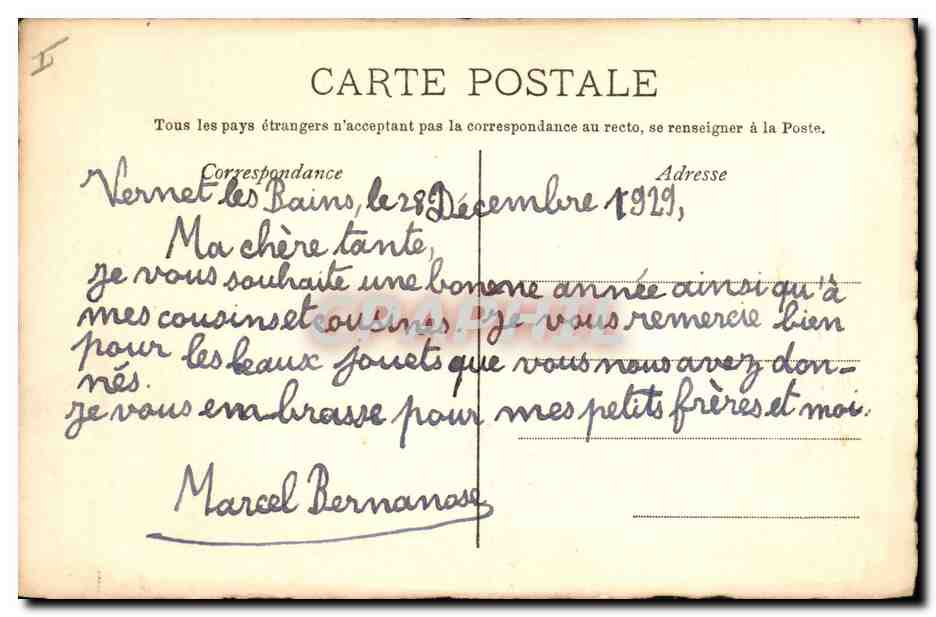 CARTE POSTALE
Tous les pays étrangers n'acceptant pas la correspondance au recto, se renseigner à la Poste.
Correspondance
Adresse
Vernet les Bains, le 28 Décembre 1929,
Ma chère tante,
je vous souhaite une bonne année ainsi qu'à
mes cousins et cousines. Je vous remercie bien
pour les beaux jouets que vous nous avez don-
nés.
Je vous embrasse pour mes petits frères et moi.
Marcel Bernanose